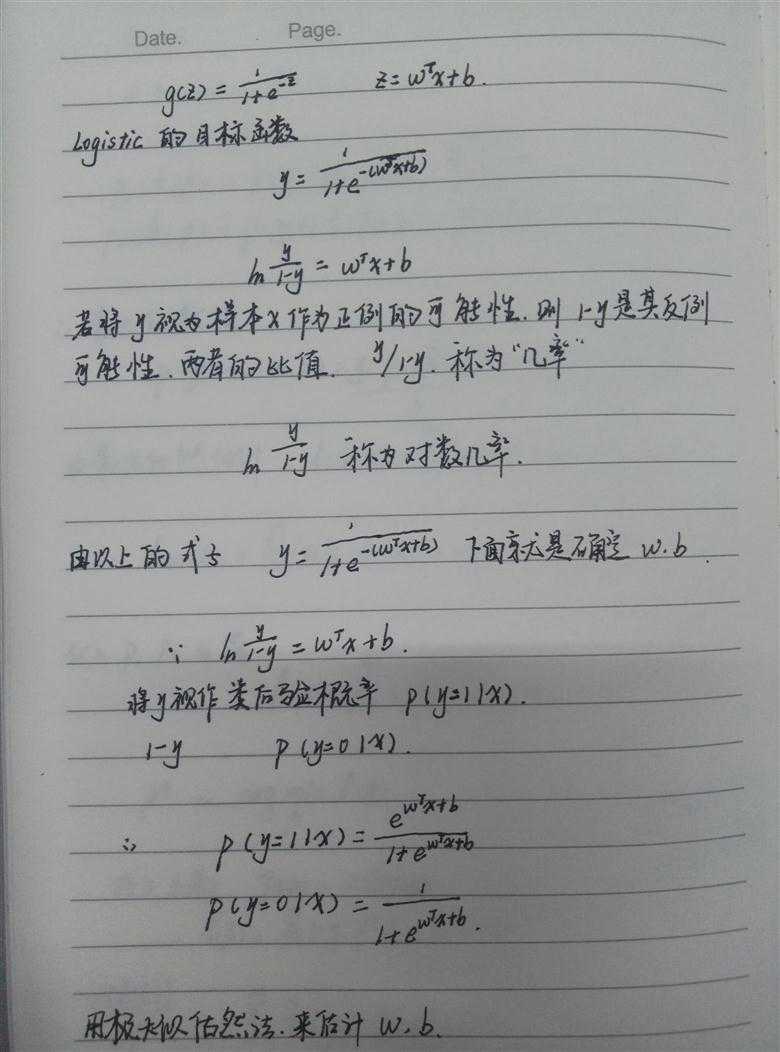 Date. Page.
g(z) = 1/(1+e^{-z})  z = w^T x + b.
Logistic 的目标函数
y = 1/(1+e^{-(w^T x+b)})
ln y/(1-y) = w^T x + b
若将 y 视为样本 x 作为正例的可能性. 则 1-y 是其反例
可能性. 两者的比值. y/1-y. 称为“几率”
ln y/(1-y) 称为对数几率.
由以上的式子 y = 1/(1+e^{-(w^T x+b)}) 下面就是确定 w.b.
∵ ln y/(1-y) = w^T x + b.
将 y 视作类后验概率 p(y=1|x).
1-y p(y=0|x).
∴ p(y=1|x) = e^{w^T x+b}/(1+e^{w^T x+b})
p(y=0|x) = 1/(1+e^{w^T x+b}).
用极大似估然法. 来估计 w, b.